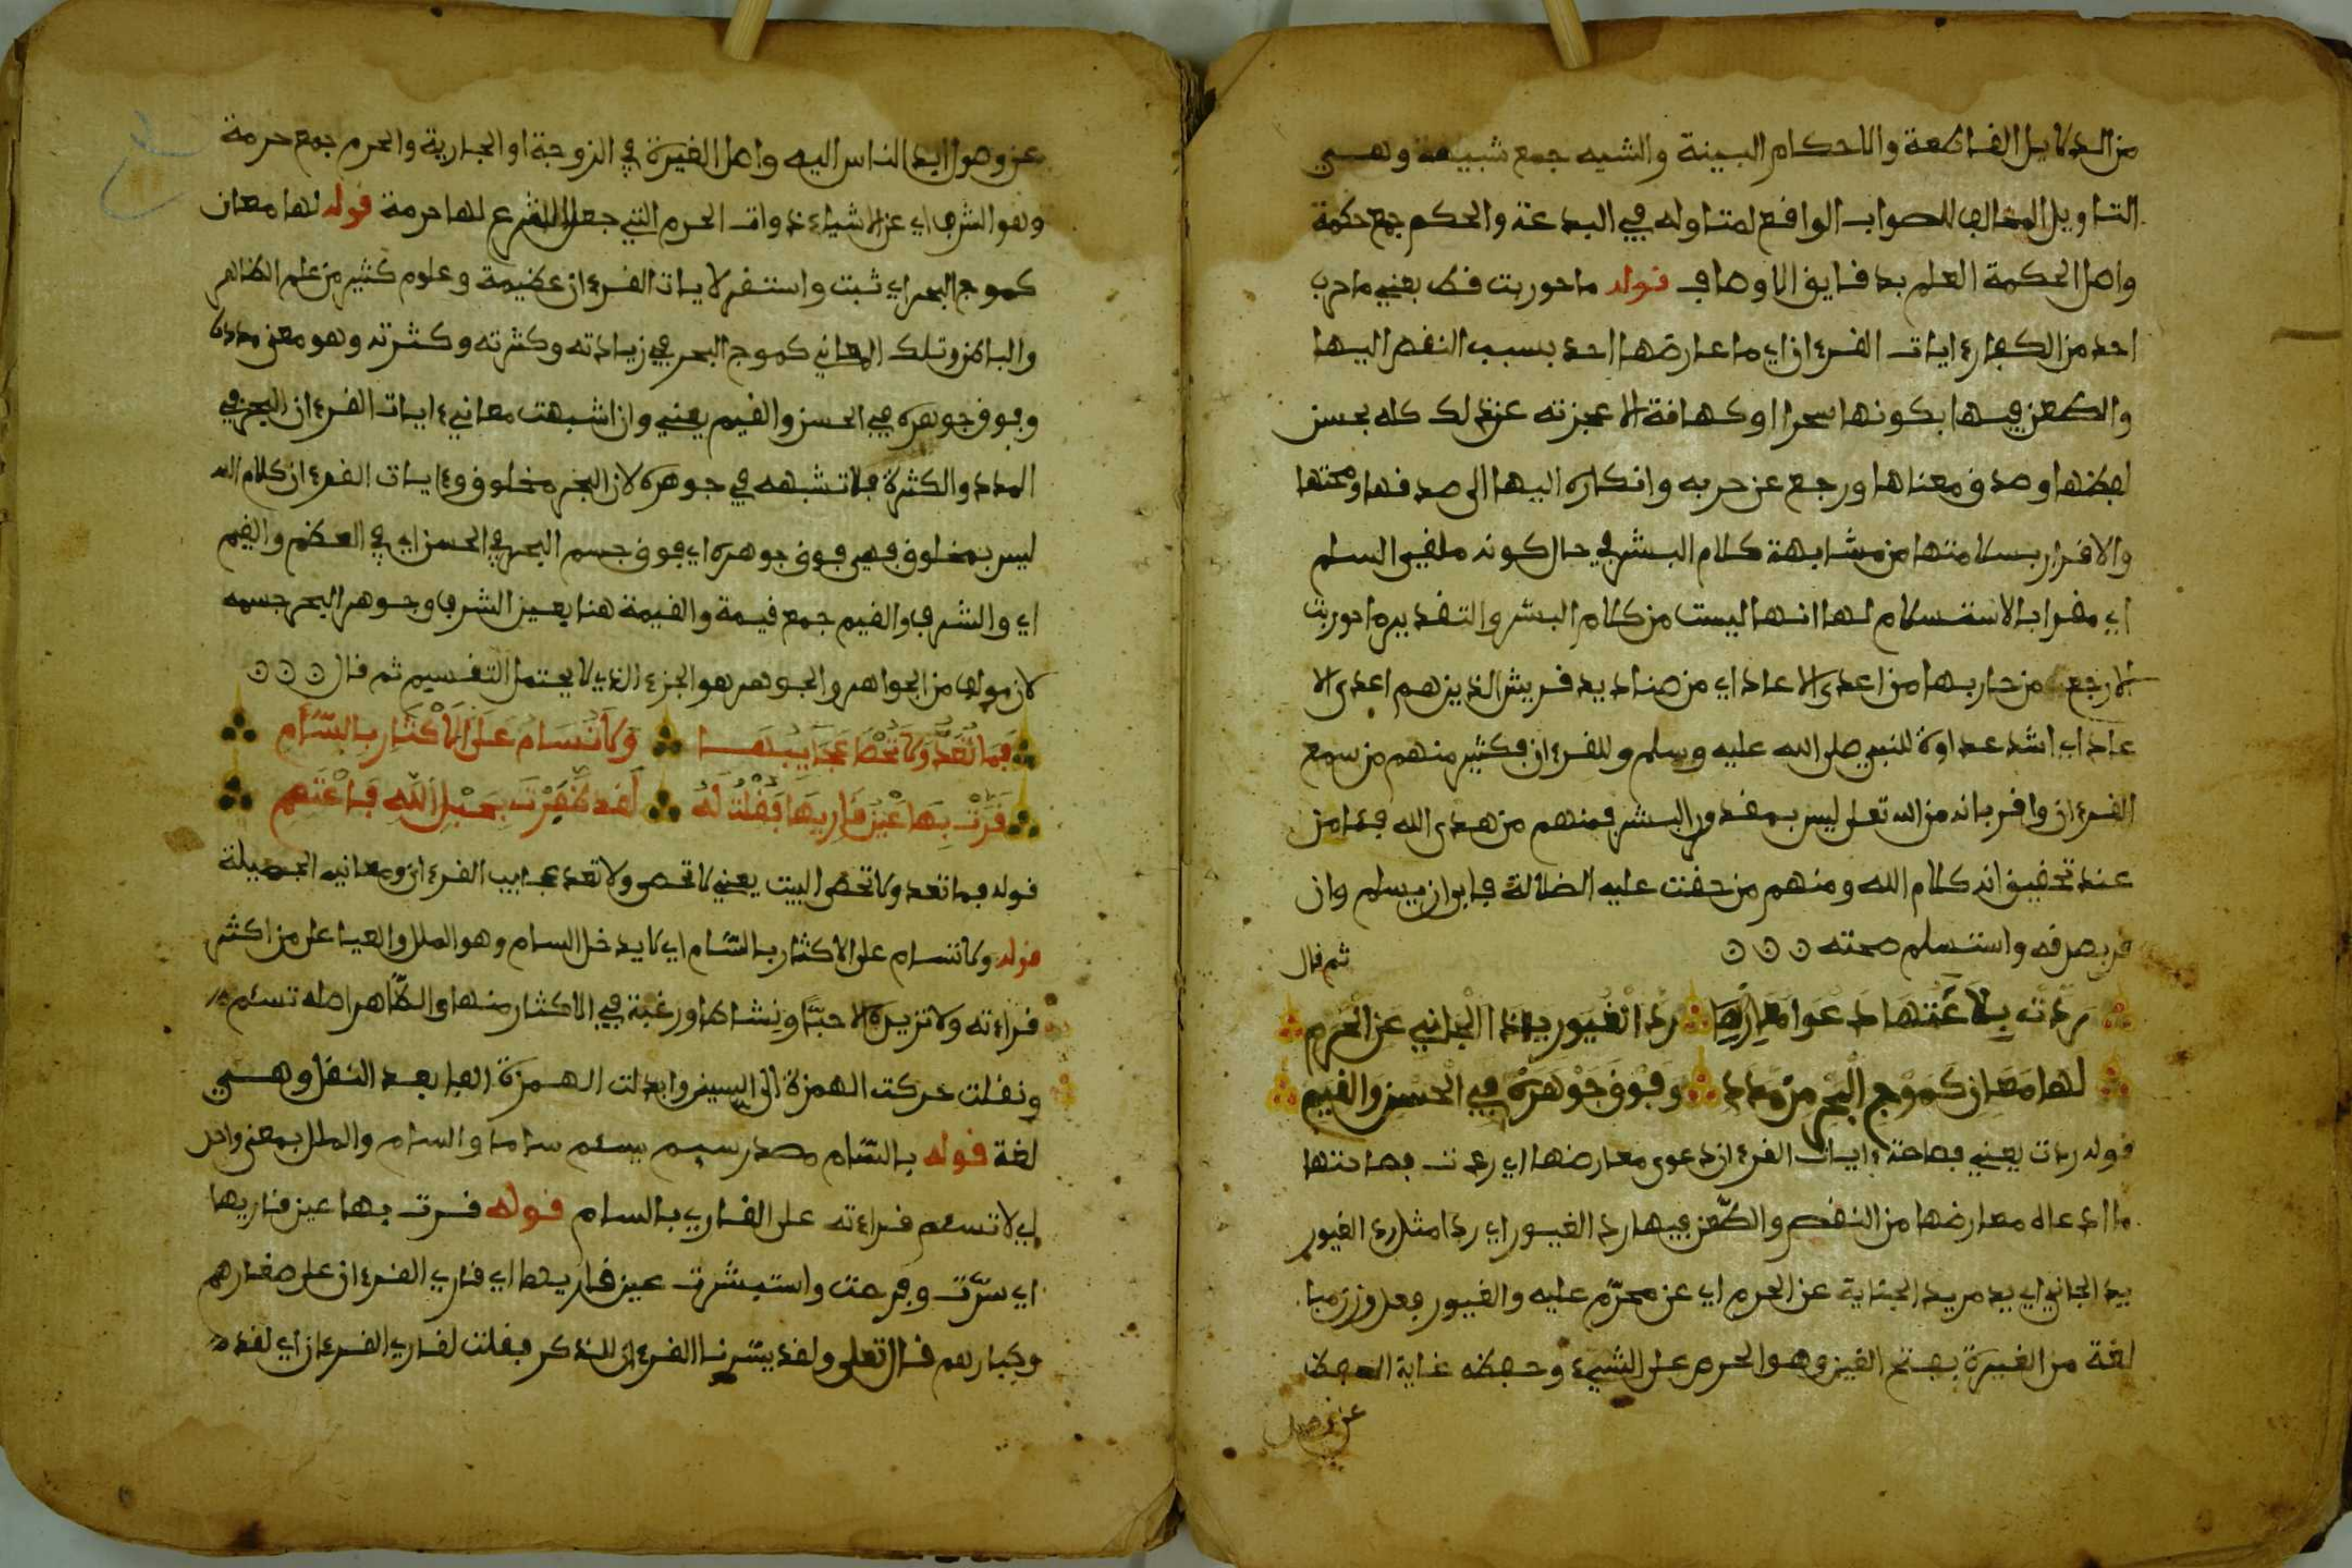 من الدلايل القاطعة والاحكام البينة والشبه جمع شبهة وهي
التاويل المخالف للصواب الواقع لمتاوله في البدعة والحكم جمع حكمة
واصل الحكمة العلم بدقايق الاوصاف قوله ما حوربت قط يعني ما حرب
احد من الكفار ءايات القرءان اي ما عارضها احد بسبب النقص اليها
والطعن فيها بكونها سحرا او كهانة الا عجزته عن ذلك كله بحسن
لفظها وصدق معناها ورجع عن حربه وانكاره اليها الى صدقها وصحتها
والاقرار بسلامتها من مشابهة كلام البشر في حال كونه ملقي السلم
اي مقرا بالاستسلام لها انها ليست من كلام البشر والتقدير ما حوربت
الا رجع من حاربها من اعدى الاعاد اي من صناديد قريش الذين هم اعدى الا
عاد اي اشد عداوة للنبي صلى الله عليه وسلم وللقرءان فكثير منهم من سمع
القرءان واقر بانه من الله تعلى ليس بمقدور البشر فمنهم من هدى الله فئامن
عند تحقيق انه كلام الله ومنهم من حقت عليه الضلالة فابى ان يسلم وان
قر بصدقه واستسلم صحته
ثم قال
ردت بلاغتها دعوا معارضها رد الغيور يد الجاني عن الحرم
لها معان كموج البحر من مدد وفوق جوهره في الحسن والقيم
قوله ردت يعني فصاحة ءايات القرءان دعوى معارضها اي ردت فصاحتها
ما ادعاه معارضها من النقص والطعن فيها رد الغيور اي ردا مثل رد الغيور
يد الجاني اي يد مريد الجناية عن الحرم اي عن محرم عليه والغيور فعل وزن مبا
لغة من الغيرة بفتح الغين وهو الحرص على الشيء وحفظه غاية الحفظ
عن وصول
عن وصول ايد الناس اليه واصل الغيرة في الزوجة او الجارية والحرم جمع حرمة
وهو الشرف اي عن الاشياء ذوات الحرم التي جعل الشرع لها حرمة قوله لها معان
كموج البحر اي ثبت واستقر لايات القرءان عظيمة وعلوم كثير من علم الظاهر
والباطن وتلك المعاني كموج البحر في زيادته وكثرته وكثرته وهو معنى مددا
وفوق جوهره في الحسن والقيم يعني وان اشبهت معاني ءايات القرءان البحر في
المدد والكثرة فلا تشبهه في جوهره لان البحر مخلوق وءايات القرءان كلام الله
ليس بمخلوق فهي فوق جوهره اي فوق جسم البحر في الحسن اي في العظم والقيم
اي والشرف والقيم جمع قيمة والقيمة هنا بمعنى الشرف وجوهر البحر جسمه
لان مولف من الجواهر والجوهر هو الجزء الذي لا يحتمل التقسيم ثم قال
فما تعد ولا تحصى عجايبها ولا تسام على الاكثار بالسام
قرت بها عين قاريها فقلت له لقد ظفرت بحبل الله فاعتصم
قوله فما تعد ولا تحصى البيت يعني لا تحصى ولا تعد عجايب القرءان ومعانيه الجميلة
قوله ولا تسام على الاكثار بالسام اي لا يدخل السام وهو الملل والعيا على من اكثر
قراءته ولا تزيده الا حبا ونشاطا ورغبة في الاكثار منها والظاهر اصله تسئم
ونقلت حركت الهمزة الى السين وابدلت الهمزة الفا بعد النقل وهي
لغة قوله بالسام مصدر سيم يسئم ساما والسام والملل بمعنى واحد
اي لا تسئم قراءته على القاري بالسام قوله قرت بها عين قاريها
اي سرت وفرحت واستبشرت عين قاريها اي قاري القرءان على صغارهم
وكبارهم قال تعلى ولقد يسرنا القرءان للذكر فقلت لقاري القرءان اي لقد